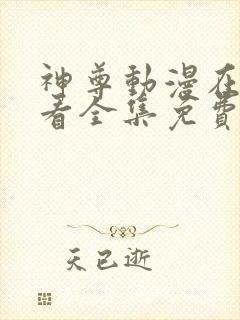 神尊動漫在
看全集免費
天已逝